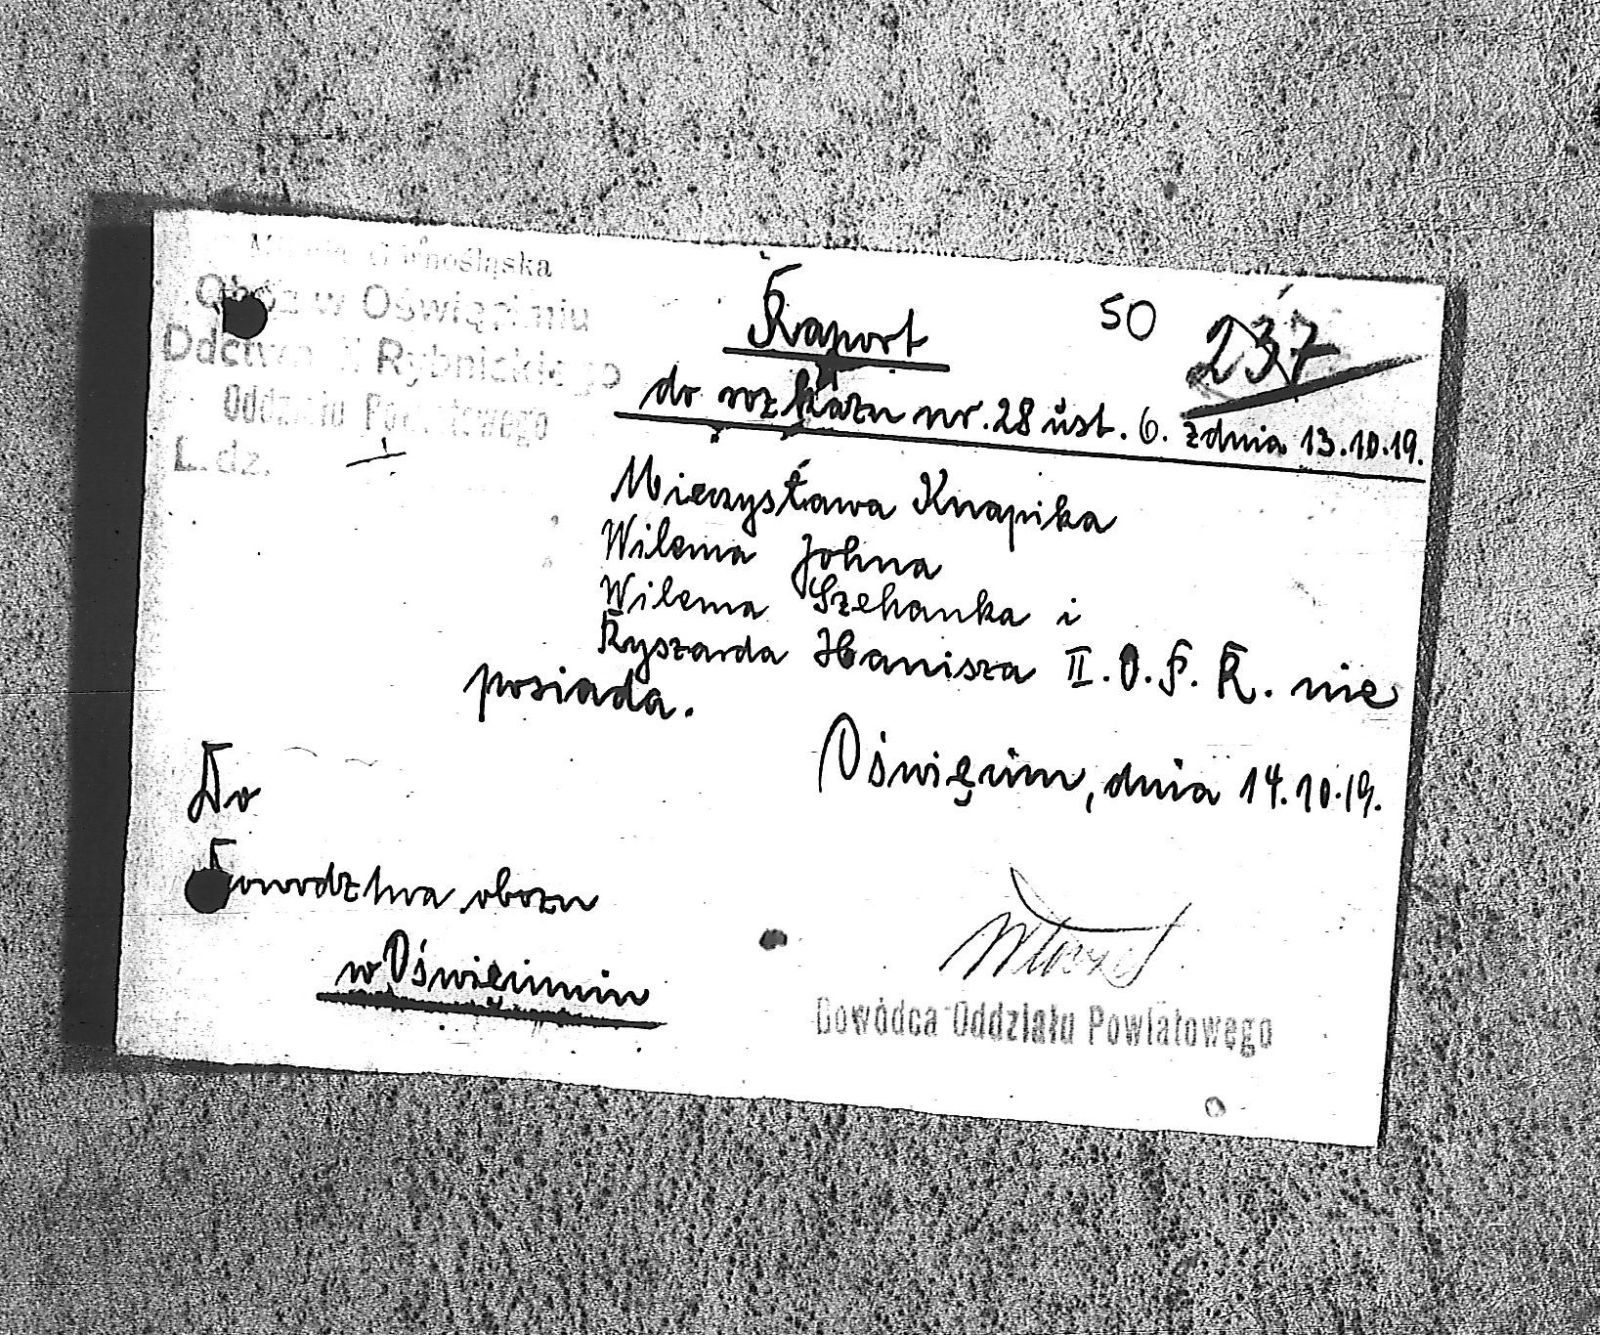 Górnośląska
Obóz w Oświęcimiu
Rybnickiego
Oddziału Powiatowego
L. dz.
Raport
50
237
do rozkazu nr. 28 ust. 6. z dnia 13.10.19.
Mieczysława Knapika
Wilema Johna
Wilema Szehanka i
Ryszarda Hanisza II. O. P. R. nie
posiada.
Oświęcim, dnia 14.10.19.
Do
Dowodztwa obozu
w Oświęcimiu
Dowódca Oddziału Powiatowego